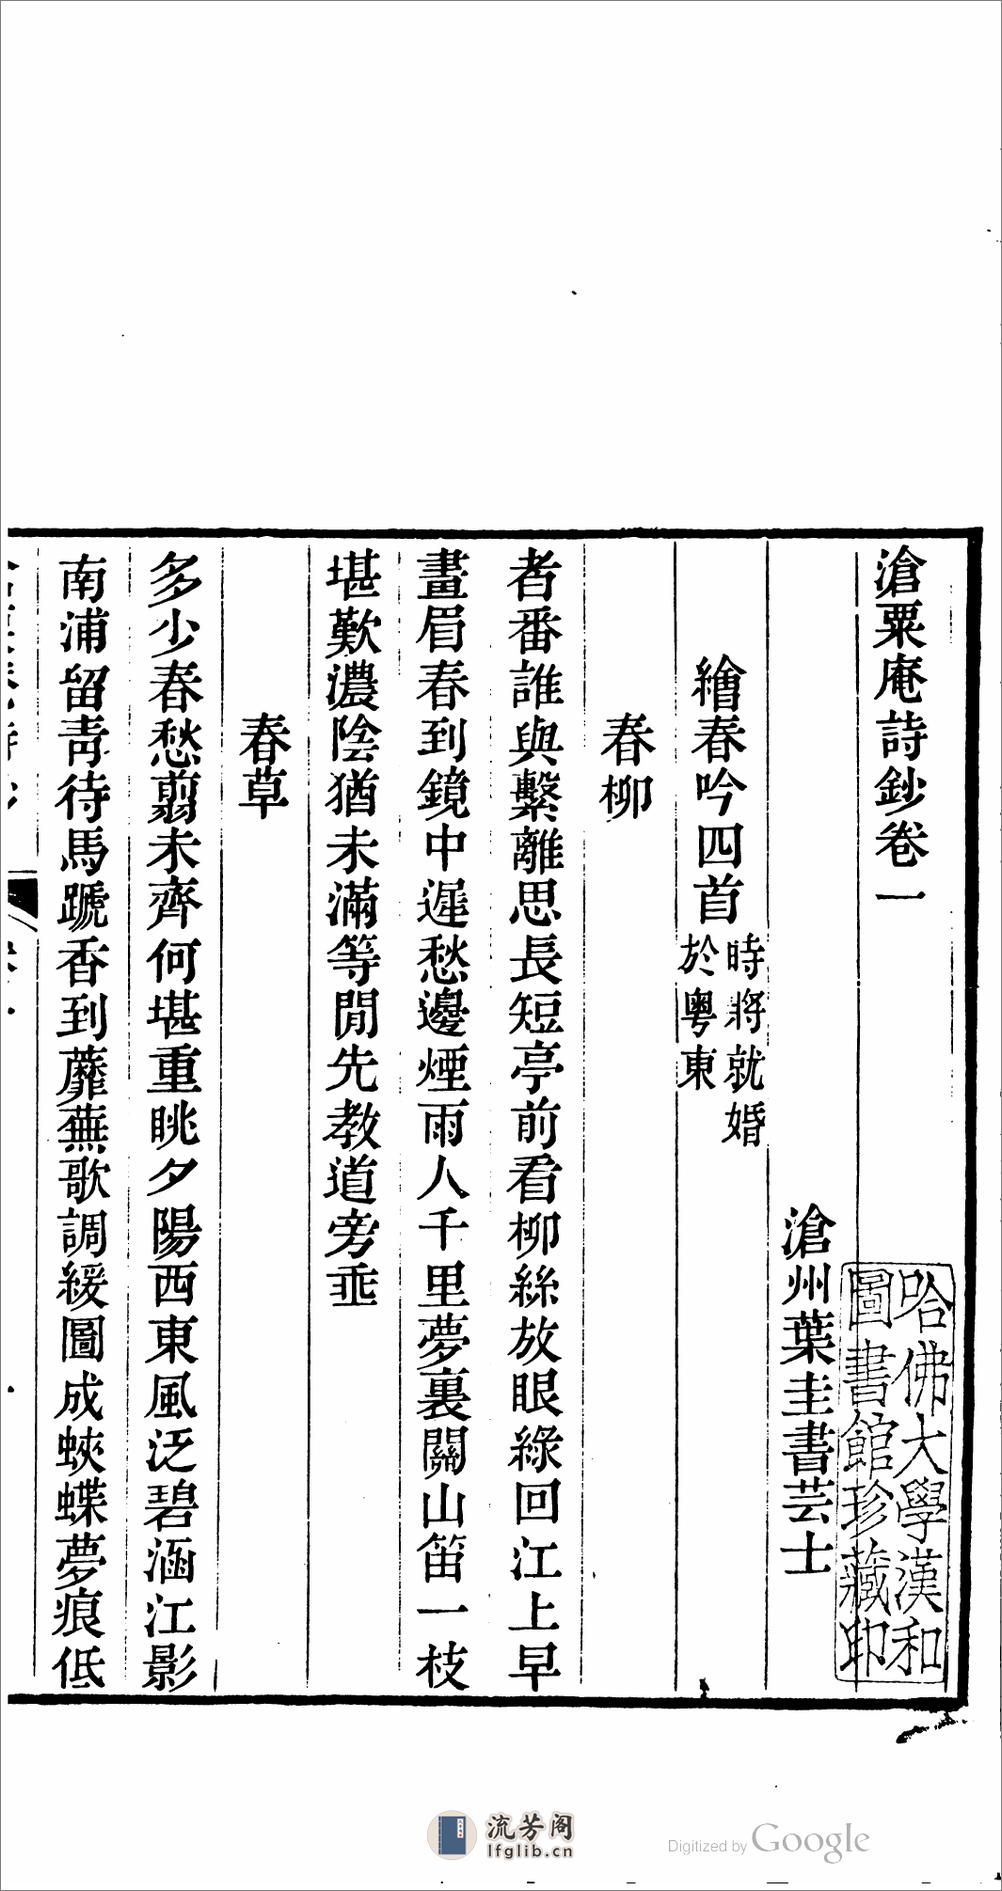 滄粟庵詩鈔卷一
滄州葉圭書芸士
繪春吟四首
時將就婚
於粤東
春柳
者番誰與繫離思長短亭前看柳絲放眼綠回江上早
畫眉春到鏡中遲愁邊煙雨人千里夢裏關山笛一枝
堪歎濃陰猶未滿等閒先教道旁垂
春草
多少春愁翦未齊何堪重眺夕陽西東風泛碧涵江影
南浦留靑待馬蹏香到蘼蕪歌調緩圖成蛺蝶夢痕低
哈佛大學漢和
圖書館珍藏印
流芳阁
lfglib.cn
Digitized by Google